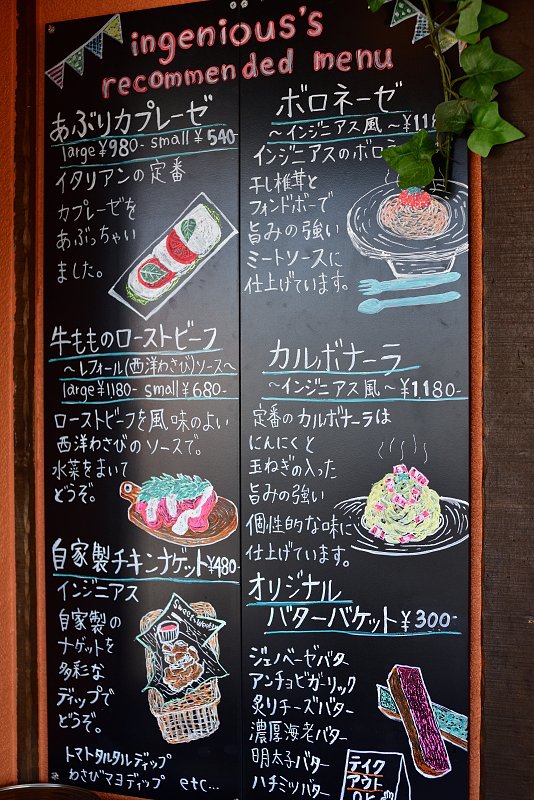 ingenious's
recommended menu
あぶりカプレーゼ
large ¥980- small ¥540-
イタリアンの定番
カプレーゼを
あぶっちゃい
ました。
牛もものローストビーフ
～レフォール(西洋わさび)ソース～
large ¥1180- small ¥680-
ローストビーフを風味のよい
西洋わさびのソースで。
水菜をまいて
どうぞ。
自家製チキンナゲット ¥480-
インジニアス
自家製の
ナゲットを
多彩な
ディップで
どうぞ。
トマトタルタルディップ
わさびマヨディップ etc...
ボロネーゼ
～インジニアス風～
インジニアスのボロ
干し椎茸と
フォンドボーで
旨みの強い
ミートソースに
仕上げています。
カルボナーラ
～インジニアス風～ ¥1180-
定番のカルボナーラは
にんにくと
玉ねぎの入った
旨みの強い
個性的な味に
仕上げています。
オリジナル
バターバケット ¥300-
ジェノベーゼバター
アンチョビガーリック
炙りチーズバター
濃厚海老バター
明太子バター
ハチミツバター
テイク
アウト
OK